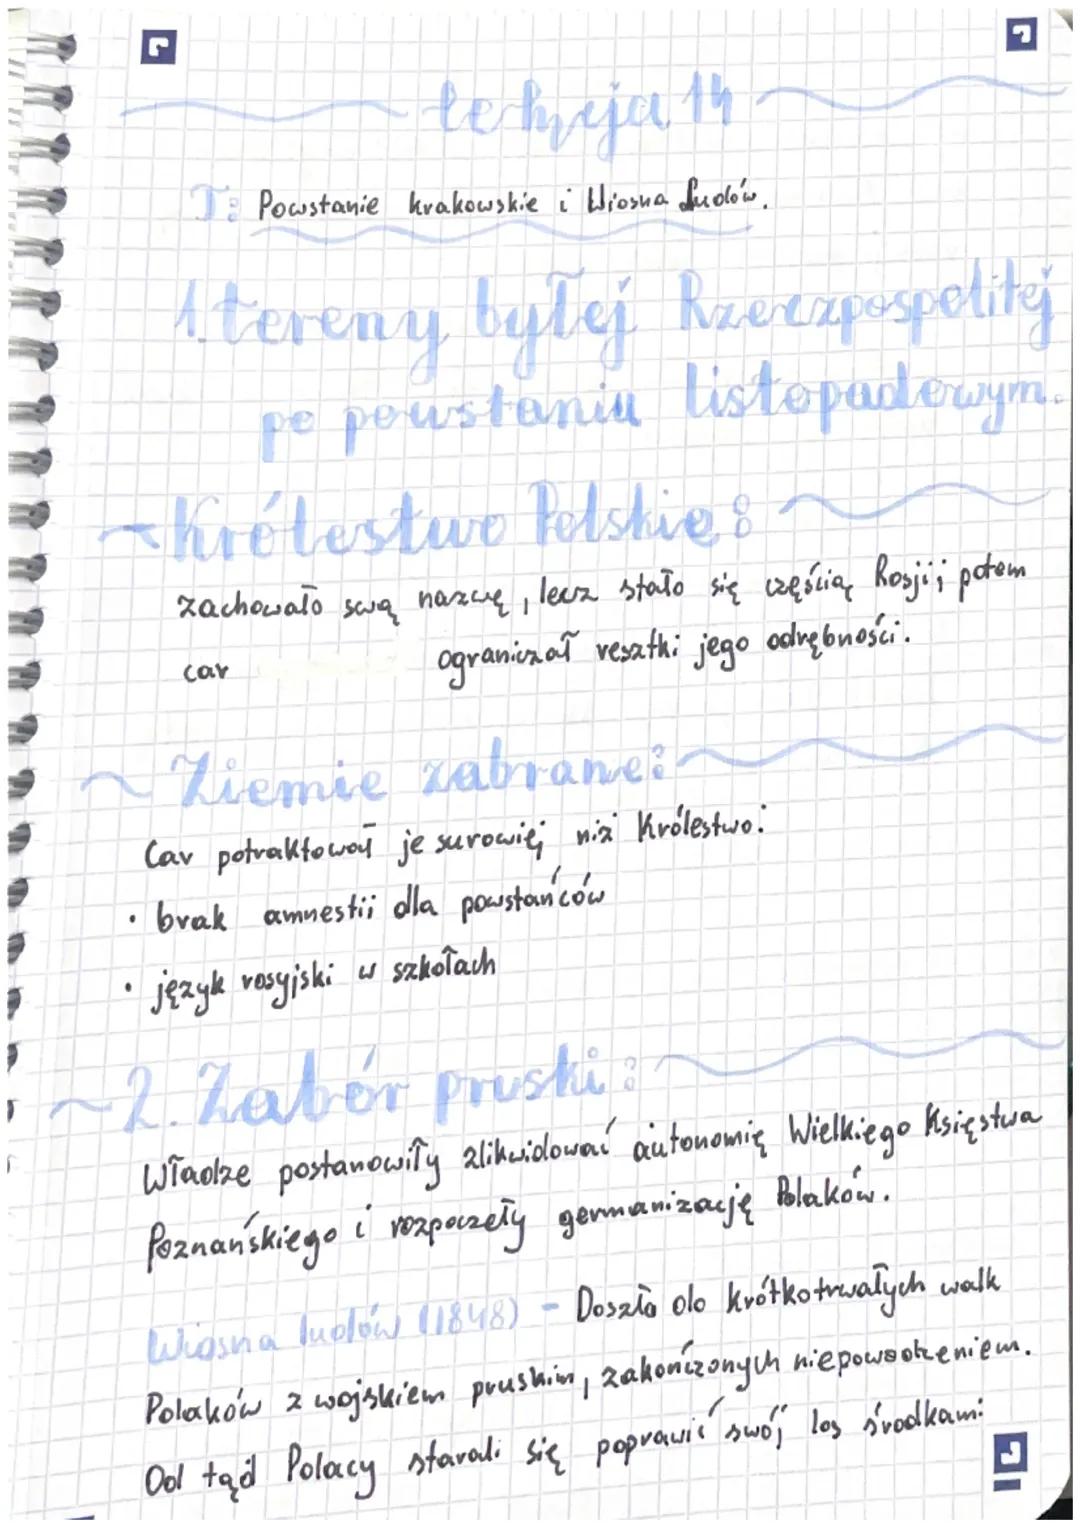 lekcja 14
T: Powstanie krakowskie i Wiosna Ludów.
1. tereny byłej Rzeczpospolitej
po powstaniu listopadowym.
~ Królestwo Polskie:
zachowało swą nazwę, lecz stało się częścią Rosji; potem
car ograniczał resztki jego odrębności.
~ Ziemie zabrane:
Car potraktował je surowiej niż Królestwo:
• brak amnestii dla powstańców
• język rosyjski w szkołach
~ 2. Zabór pruski:
Władze postanowiły zlikwidować autonomię Wielkiego Księstwa
Poznańskiego i rozpoczeły germanizację Polaków.
Wiosna ludów (1848) - Doszło do krótkotrwałych walk
Polaków z wojskiem pruskim, zakończonych niepowodzeniem.
Od tąd Polacy starali się poprawić swój los środkami